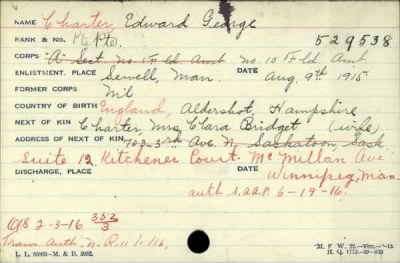 NAME Charter, Edward George
RANK & NO. Pte. 529538
CORPS "A" Sect No 1 Fld Amb. No. 10 Fld. Amb.
ENLISTMENT, PLACE Sewell, Man. DATE Aug. 9th 1915
FORMER CORPS Nil
COUNTRY OF BIRTH England, Aldershot, Hampshire
NEXT OF KIN Charter, Mrs Clara Bridget (wife)
ADDRESS OF NEXT OF KIN 703-3rd Ave N, Saskatoon, Sask
Suite 12 Kitchener Court. McMillan Ave
DISCHARGE, PLACE DATE Winnipeg, Man.
auth S.A.A.P. 6-19-16.
O/S 2-3-16 353/3
Trans. Auth. N.R.
L. L. 89093—M. & D. 5932.
M. F. W. 22.
H. Q. 1772-39-839